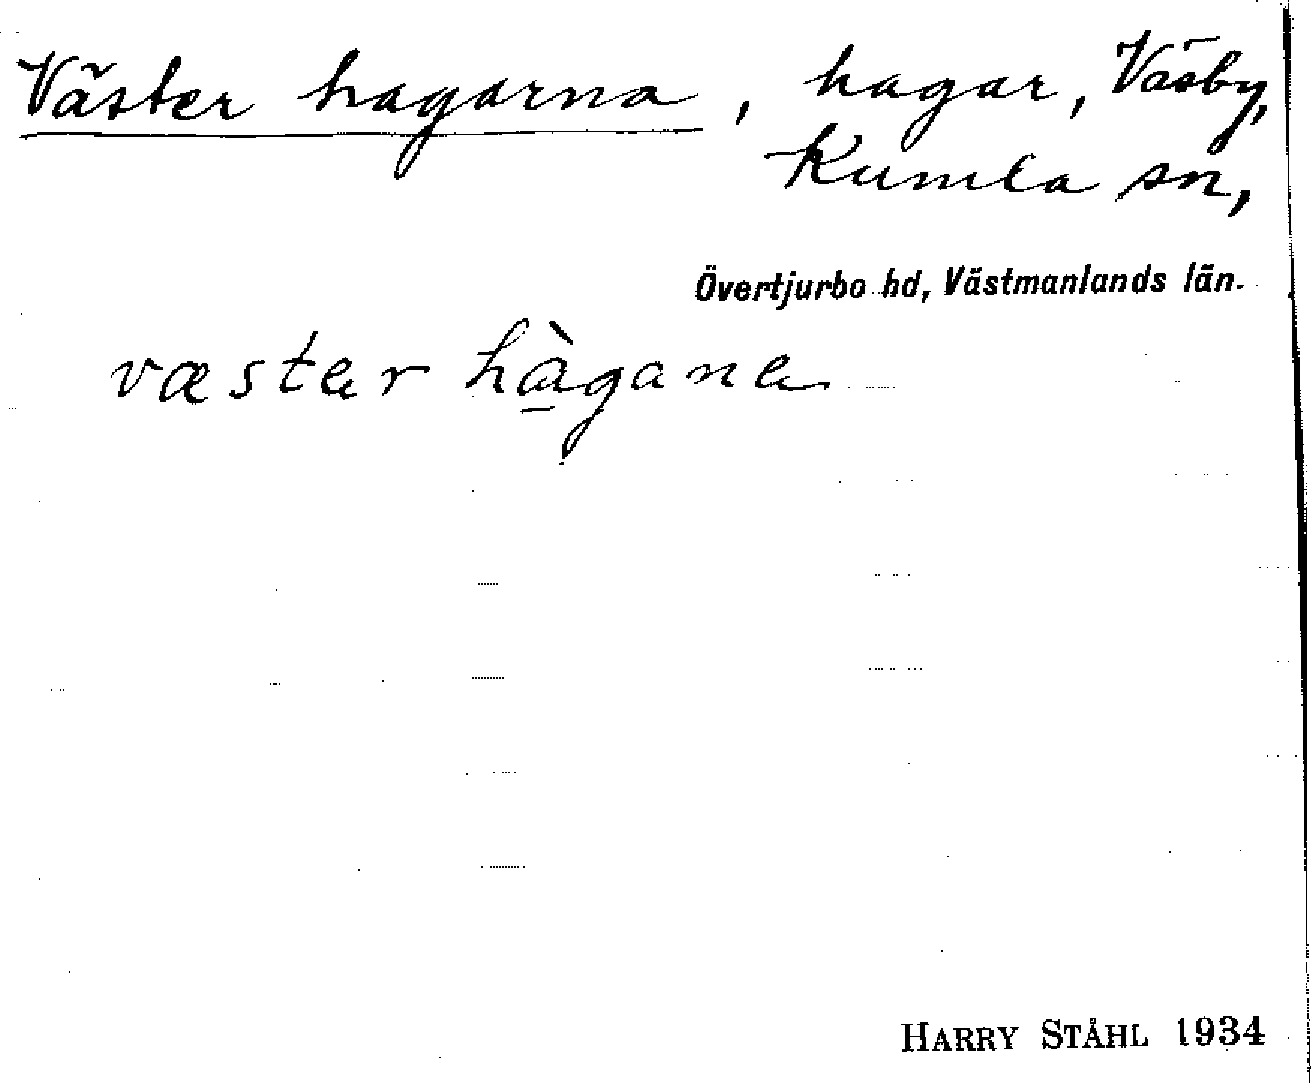 Väster hagarna, hagar, Väsby,
Kumla sn,
Övertjurbo hd, Västmanlands län.
væster hàgana
HARRY STÅHL 1934